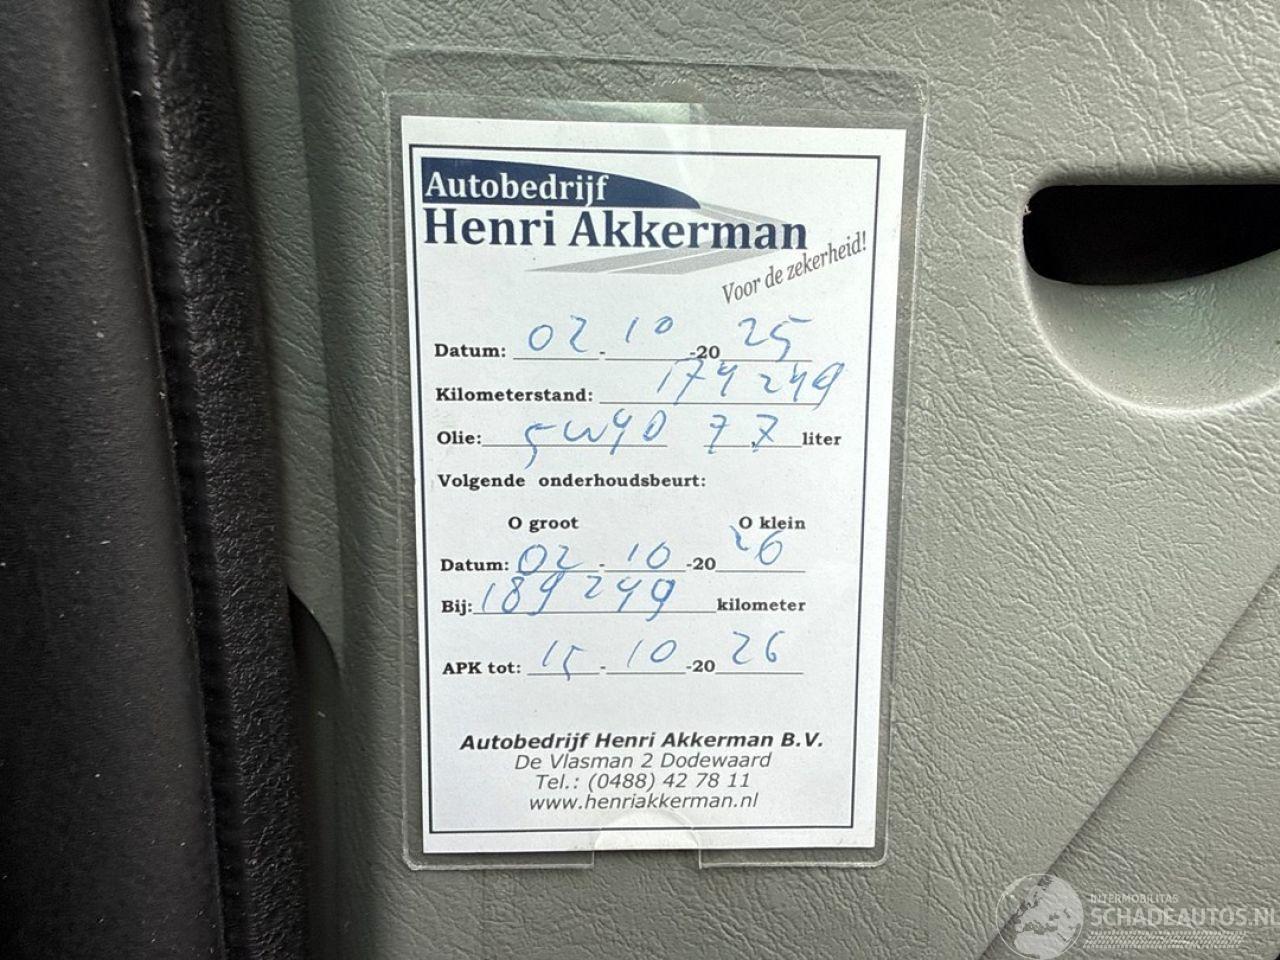 Autobedrijf
Henri Akkerman
Voor de zekerheid!
Datum: 02 - 10 -20 25
Kilometerstand: 174 249
Olie: 5W40 7,7 liter
Volgende onderhoudsbeurt:
O groot O klein
Datum: 02 - 10 -20 26
Bij: 189 249 kilometer
APK tot: 15 - 10 -20 26
Autobedrijf Henri Akkerman B.V.
De Vlasman 2 Dodewaard
Tel.: (0488) 42 78 11
www.henriakkerman.nl
INTERMOBILITAS
SCHADEAUTOS.NL